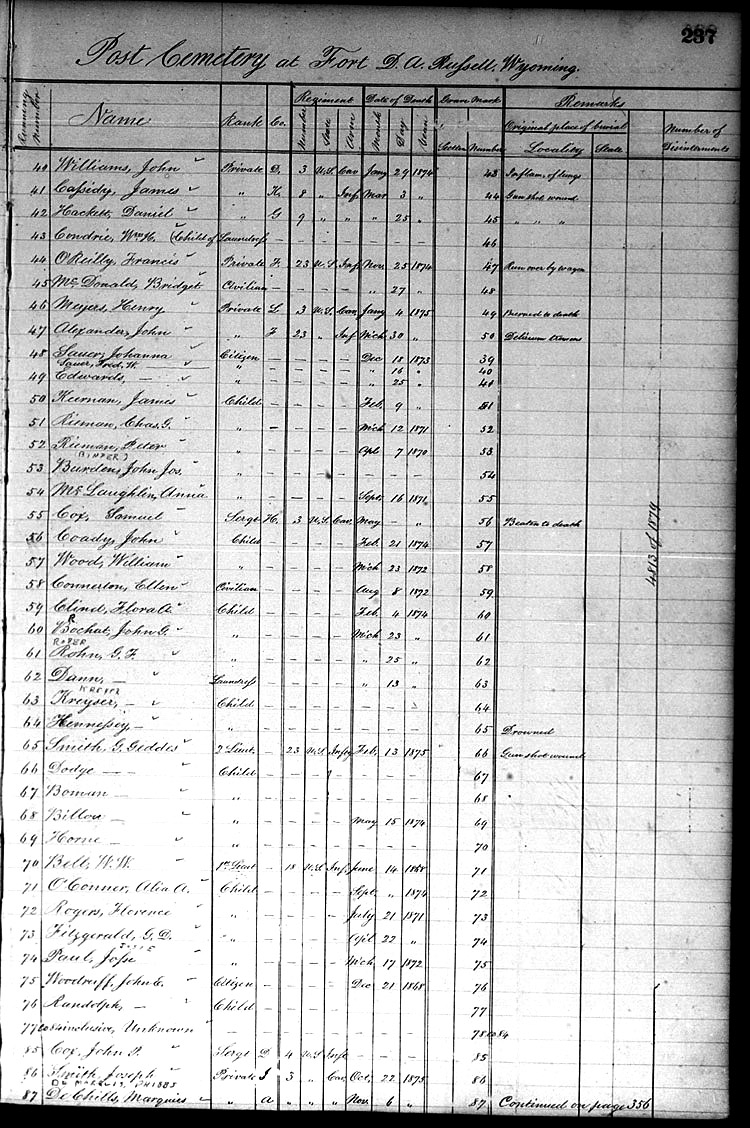 237
Post Cemetery at Fort D. A. Russell, Wyoming.
Regiment Date of Death Grave Mark Remarks
Number Name Rank Co. Number Arm Month Day Section Number Original place of burial Locality State Number of Disinterments
40 Williams, John Private D. 3 U.S. Cav. Jany 29 1874 43 Inflam. of lungs
41 Cassidy, James " K. 8 " Inf. Mar 3 " 44 Gun shot wound
42 Hackett, Daniel " G 9 " " " 25 " 45 " " "
43 Cowdrie, Wm H. (Child of Laundress — — — — — — — 46
44 O'Reilly, Francis Private F. 23 U.S. Inf. Nov. 25 1874 47 Run over by wagon
45 McDonald, Bridget Civilian — — — — " 27 " 48
46 Meyers, Henry Private L 3 U.S. Cav. Jany 4 1875 49 Burned to death
47 Alexander, John " F 23 " Inf. Mch 30 " 50 Delirium tremens
48 Sauer, Johanna Citizen — — — — Dec 18 1873 39
Sauer, Fred. W. " — — — — " 16 " 40
49 Edwards, — " — — — — " 25 " 41
50 Keernan, James Child — — — — Feb. 9 " 51
51 Rieman, Chas. G. " — — — — Mch 12 1871 52
52 Rieman, Peter " — — — — Apl 7 1870 53
53 Burden, John Jos. " — — — — — — — 54
54 McLaughlin, Anna " — — — — Sept. 16 1871 55
55 Cox, Samuel Sergt H. 3 U.S. Cav. May — " 56 Beaten to death
56 Coady, John Child — — — — Feb. 21 1874 57
57 Wood, William " — — — — Mch 23 1872 58
58 Connerton, Ellen Civilian — — — — Aug 8 1872 59
59 Clind, Flora A. Child — — — — Feb. 4 1874 60
60 Bochat, John G. " — — — — Mch 23 " 61
61 Rohn, G. F. " — — — — " 25 " 62
62 Dann, — Laundress — — — — " 13 " 63
63 Kreyser, — Child — — — — — — — 64
64 Hennessey, — " — — — — — — — 65 Drowned
65 Smith, G. Geddes 2d Lieut. — 23 U.S. Infy Feb. 13 1875 66 Gun shot wound
66 Dodge — Child — — — — — — 67
67 Boman — " — — — — — — — 68
68 Billow — " — — — — May 15 1874 69
69 Horne — " — — — — — — — 70
70 Bell, W. W. 1st Lieut — 18 U.S. Inf. June 14 1868 71
71 O'Conner, Alia A. Child — — — — Sept. " 1874 72
72 Rogers, Florence " — — — — July 21 1871 73
73 Fitzgerald, G. D. " — — — — Apl 22 " 74
74 Paul, " — — — — Mch 17 1872 75
75 Woodruff, John E. Citizen — — — — Dec 21 1868 76
76 Randolph, — Child — — — — — — — 77
77 to 84 inclusive, Unknown — — — — — — — — 78 to 84
85 Cox, John P. Sergt D. 4 U.S. Inf. — — — 85
86 Smith, Joseph Private I 3 " Cav. Oct. 22 1875 86
87 De Chills, Marquies " A " " " Nov. 6 " 87 Continued on page 356
4813 of 1879